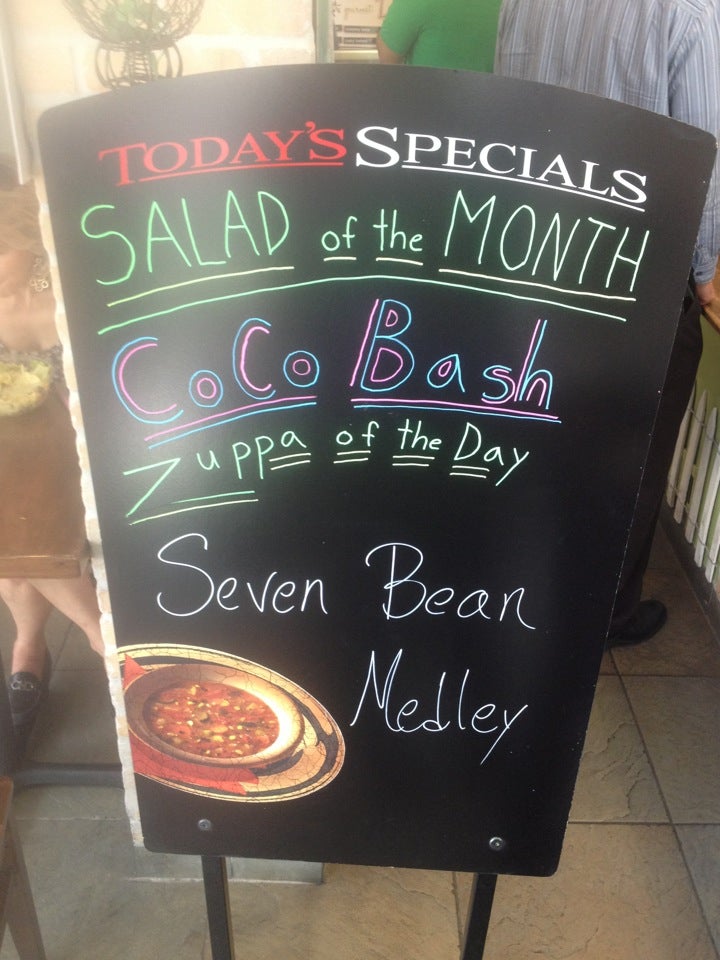 TODAY'S SPECIALS
SALAD of the MONTH
CoCo Bash
Zuppa of the Day
Seven Bean
Medley